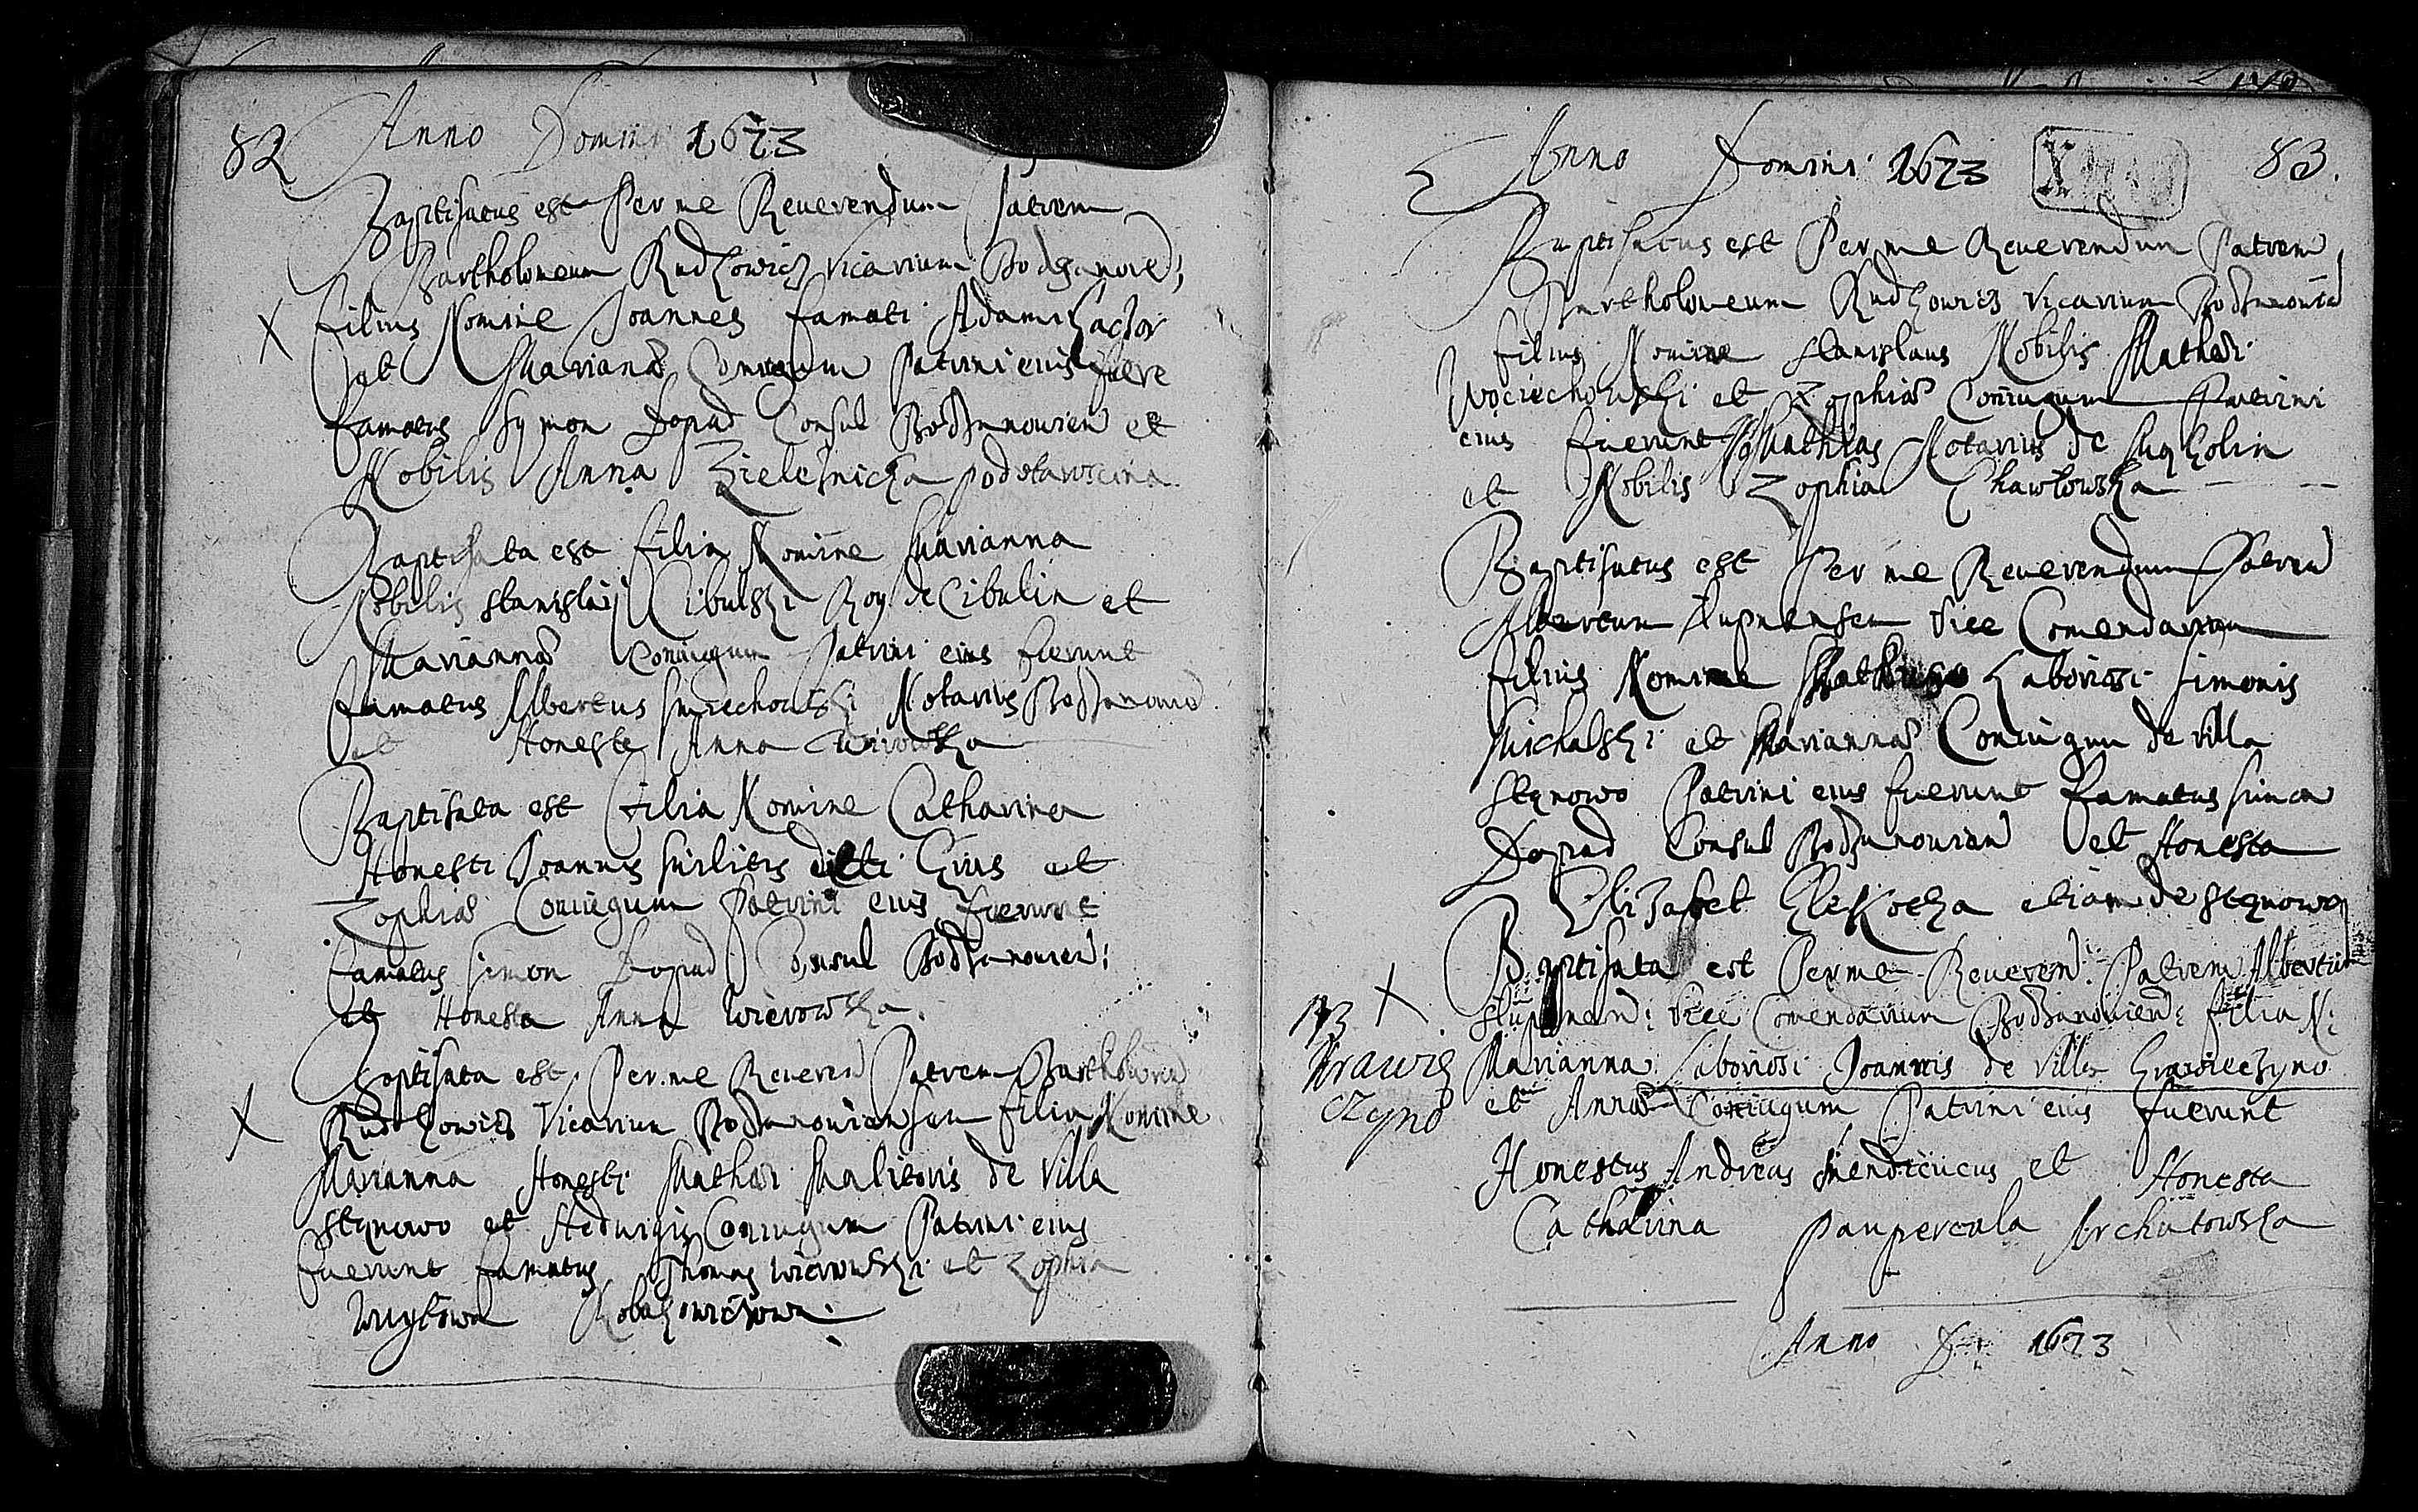 82 Anno Domini 1673
Baptisatus est Per me Reverendum Patrem
Bartholomeum Rudkowicz Vicarium Bodzanovien;
X filius Nomine Joannes famati Adami
et Marianæ Coniugum Patrini eius fuere
famatus Symon Lopad Consul Bodzanovien et
Nobilis Anna Zieleznicka podstaroscina
Baptisata est filia Nomine Marianna
Nobilis Stanislai Cibulski Roy de Cibulin et
Mariannæ Coniugum Patrini eius fuerunt
famatus Albertus Smiechowski Notarius Bodzanovie
et Honeste Anna Wirowska
Baptisata est filia Nomine Catharina
Honesti Joannis dicti et
Zophiæ Coniugum Patrini eius fuerunt
famatus Simon Lopad Consul Bodzanovien;
et Honesta Anna Wierowska.
Baptisata est Per me Reveren Patrem Bartholomeu
X Rudkowicz Vicarium Bodzanoviensem filia Nomine
Marianna Honesti Mathæi Malitoris de Villa
Stqnowo et Hedwigis Coniugum Patrini eius
fuerunt famatus Thomas Wierowski et Zophia
Woytowa
Anno Domini 1673 83.
Baptisatus est Per me Reverendum Patrem
Bartholomeum Rudkowicz Vicarium Bodzanovien
filius Nomine Stanislaus Nobilis Mathæi
Woyciechowski et Zophiæ Coniugum Patrini
eius fuerunt Mathias Notarius de
et Nobilis Zophia Chawlowska
Baptisatus est Per me Reverendum Patrem
Albertum Slupnensem Vice Comendarium
filius Nomine Laboriosi Simonis
Michalski et Mariannæ Coniugum de villa
Stqnowo Patrini eius fuerunt famatus Simon
Lopad Consul Bodzanovien et Honesta
Elizabet etiam de Stqnowo
X Baptisata est Per me Reveren: Patrem Albertum
Slupnen: Vice Comendarium Bodzanovien: filia N:
Krawie Marianna Laboriosi Joannis de Villa Krawieczyno
czyno et Annæ Coniugum Patrini eius fuerunt
Honestus Andreas Mendicucus et Honesta
Catharina Paupercula Archutowska
Anno D 1673